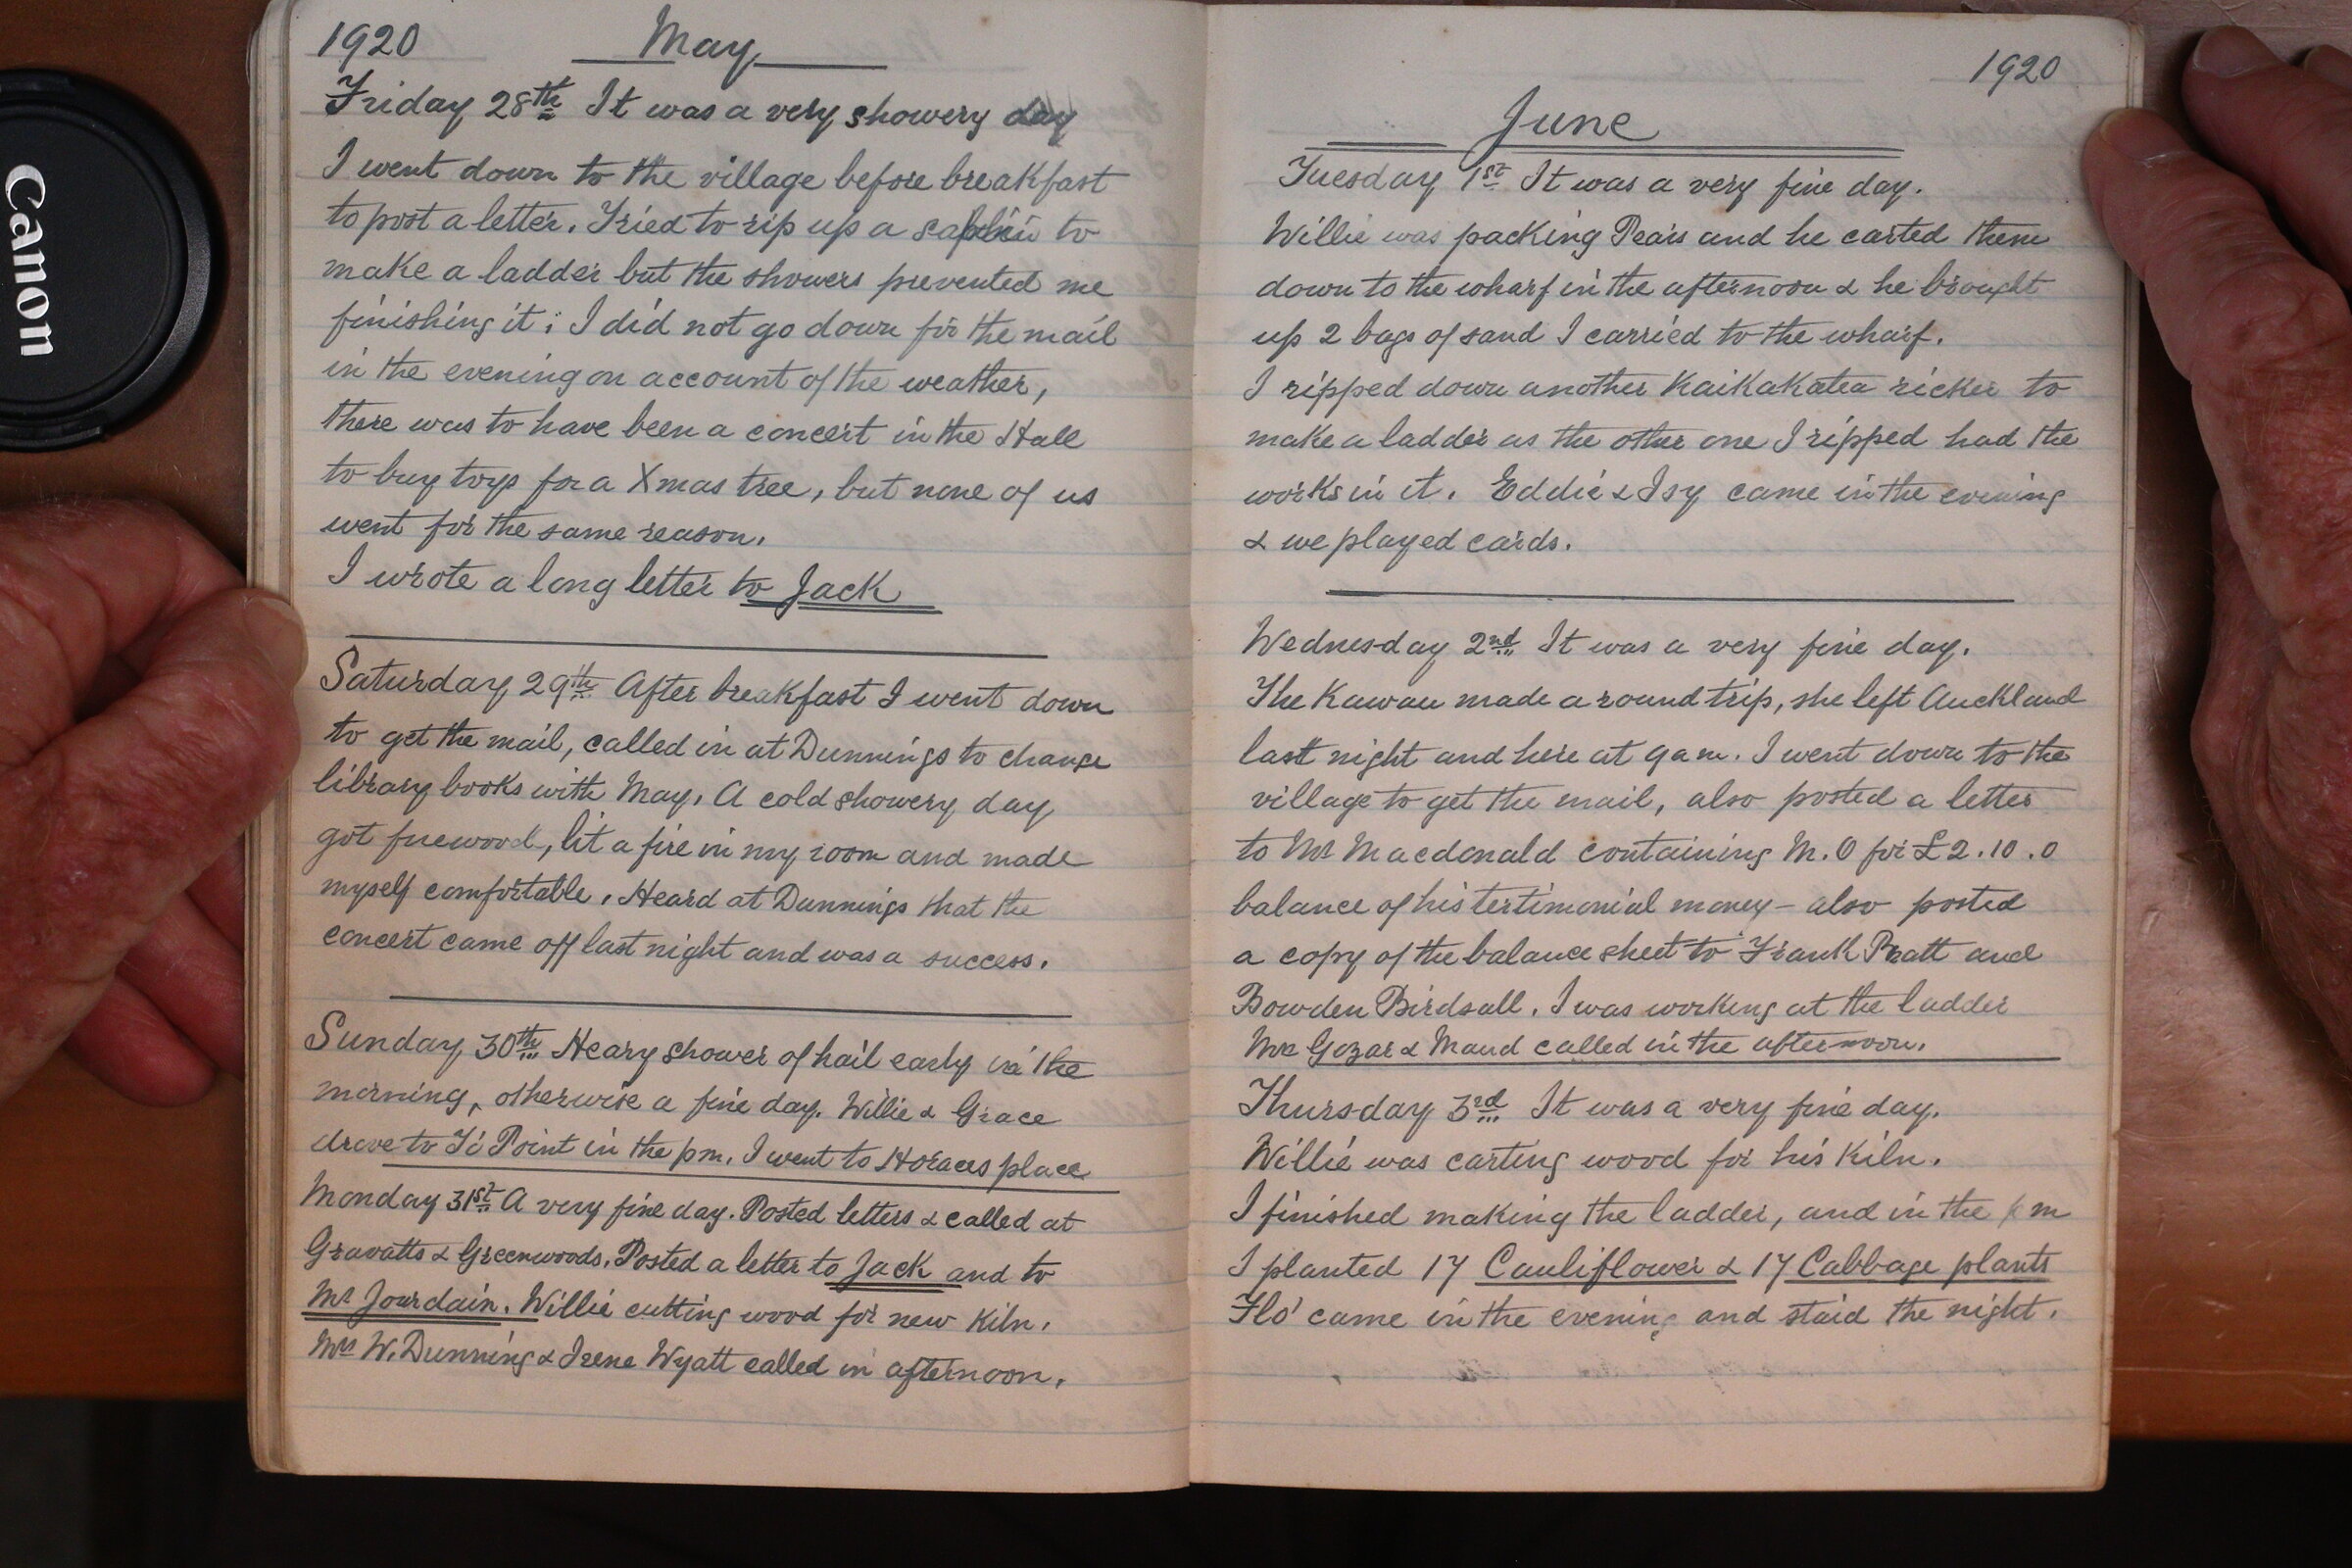 Canon
1920 May
Friday 28th It was a very showery day
I went down to the village before breakfast
to post a letter. Tried to rip up a saplin to
make a ladder but the showers prevented me
finishing it: I did not go down for the mail
in the evening on account of the weather,
there was to have been a concert in the Hall
to buy toys for a Xmas tree, but none of us
went for the same reason.
I wrote a long letter to Jack
Saturday 29th After breakfast I went down
to get the mail, called in at Dunnings to change
library books with May. A cold showery day
got firewood, lit a fire in my room and made
myself comfortable. Heard at Dunnings that the
concert came off last night and was a success.
Sunday 30th Heavy shower of hail early in the
morning, otherwise a fine day. Willie & Grace
drove to Ti Point in the pm. I went to Horaces place
Monday 31st A very fine day. Posted letters & called at
Gravatts & Greenwoods. Posted a letter to Jack and to
Mr Jourdain. Willie cutting wood for new Kiln.
Mrs W. Dunning & Irene Wyatt called in afternoon.
1920
June
Tuesday 1st It was a very fine day.
Willie was packing Pears and he carted them
down to the wharf in the afternoon & he brought
up 2 bags of sand I carried to the wharf.
I ripped down another Kaikakatea ricker to
make a ladder as the other one I ripped had the
works in it. Eddie & Isy came in the evening
& we played cards.
Wednesday 2nd It was a very fine day.
The Kawau made a round trip, she left Auckland
last night and here at 9 am. I went down to the
village to get the mail, also posted a letter
to Mr Macdonald containing M.O for £2.10.0
balance of his tertimonial money - also posted
a copy of the balance sheet to Frank Pratt and
Bowden Birdsall. I was working at the ladder
Mrs Gozar & Maud called in the afternoon.
Thursday 3rd It was a very fine day.
Willie was carting wood for his Kiln.
I finished making the ladder, and in the pm
I planted 17 Cauliflower & 17 Cabbage plants
Flo' came in the evening and staid the night.